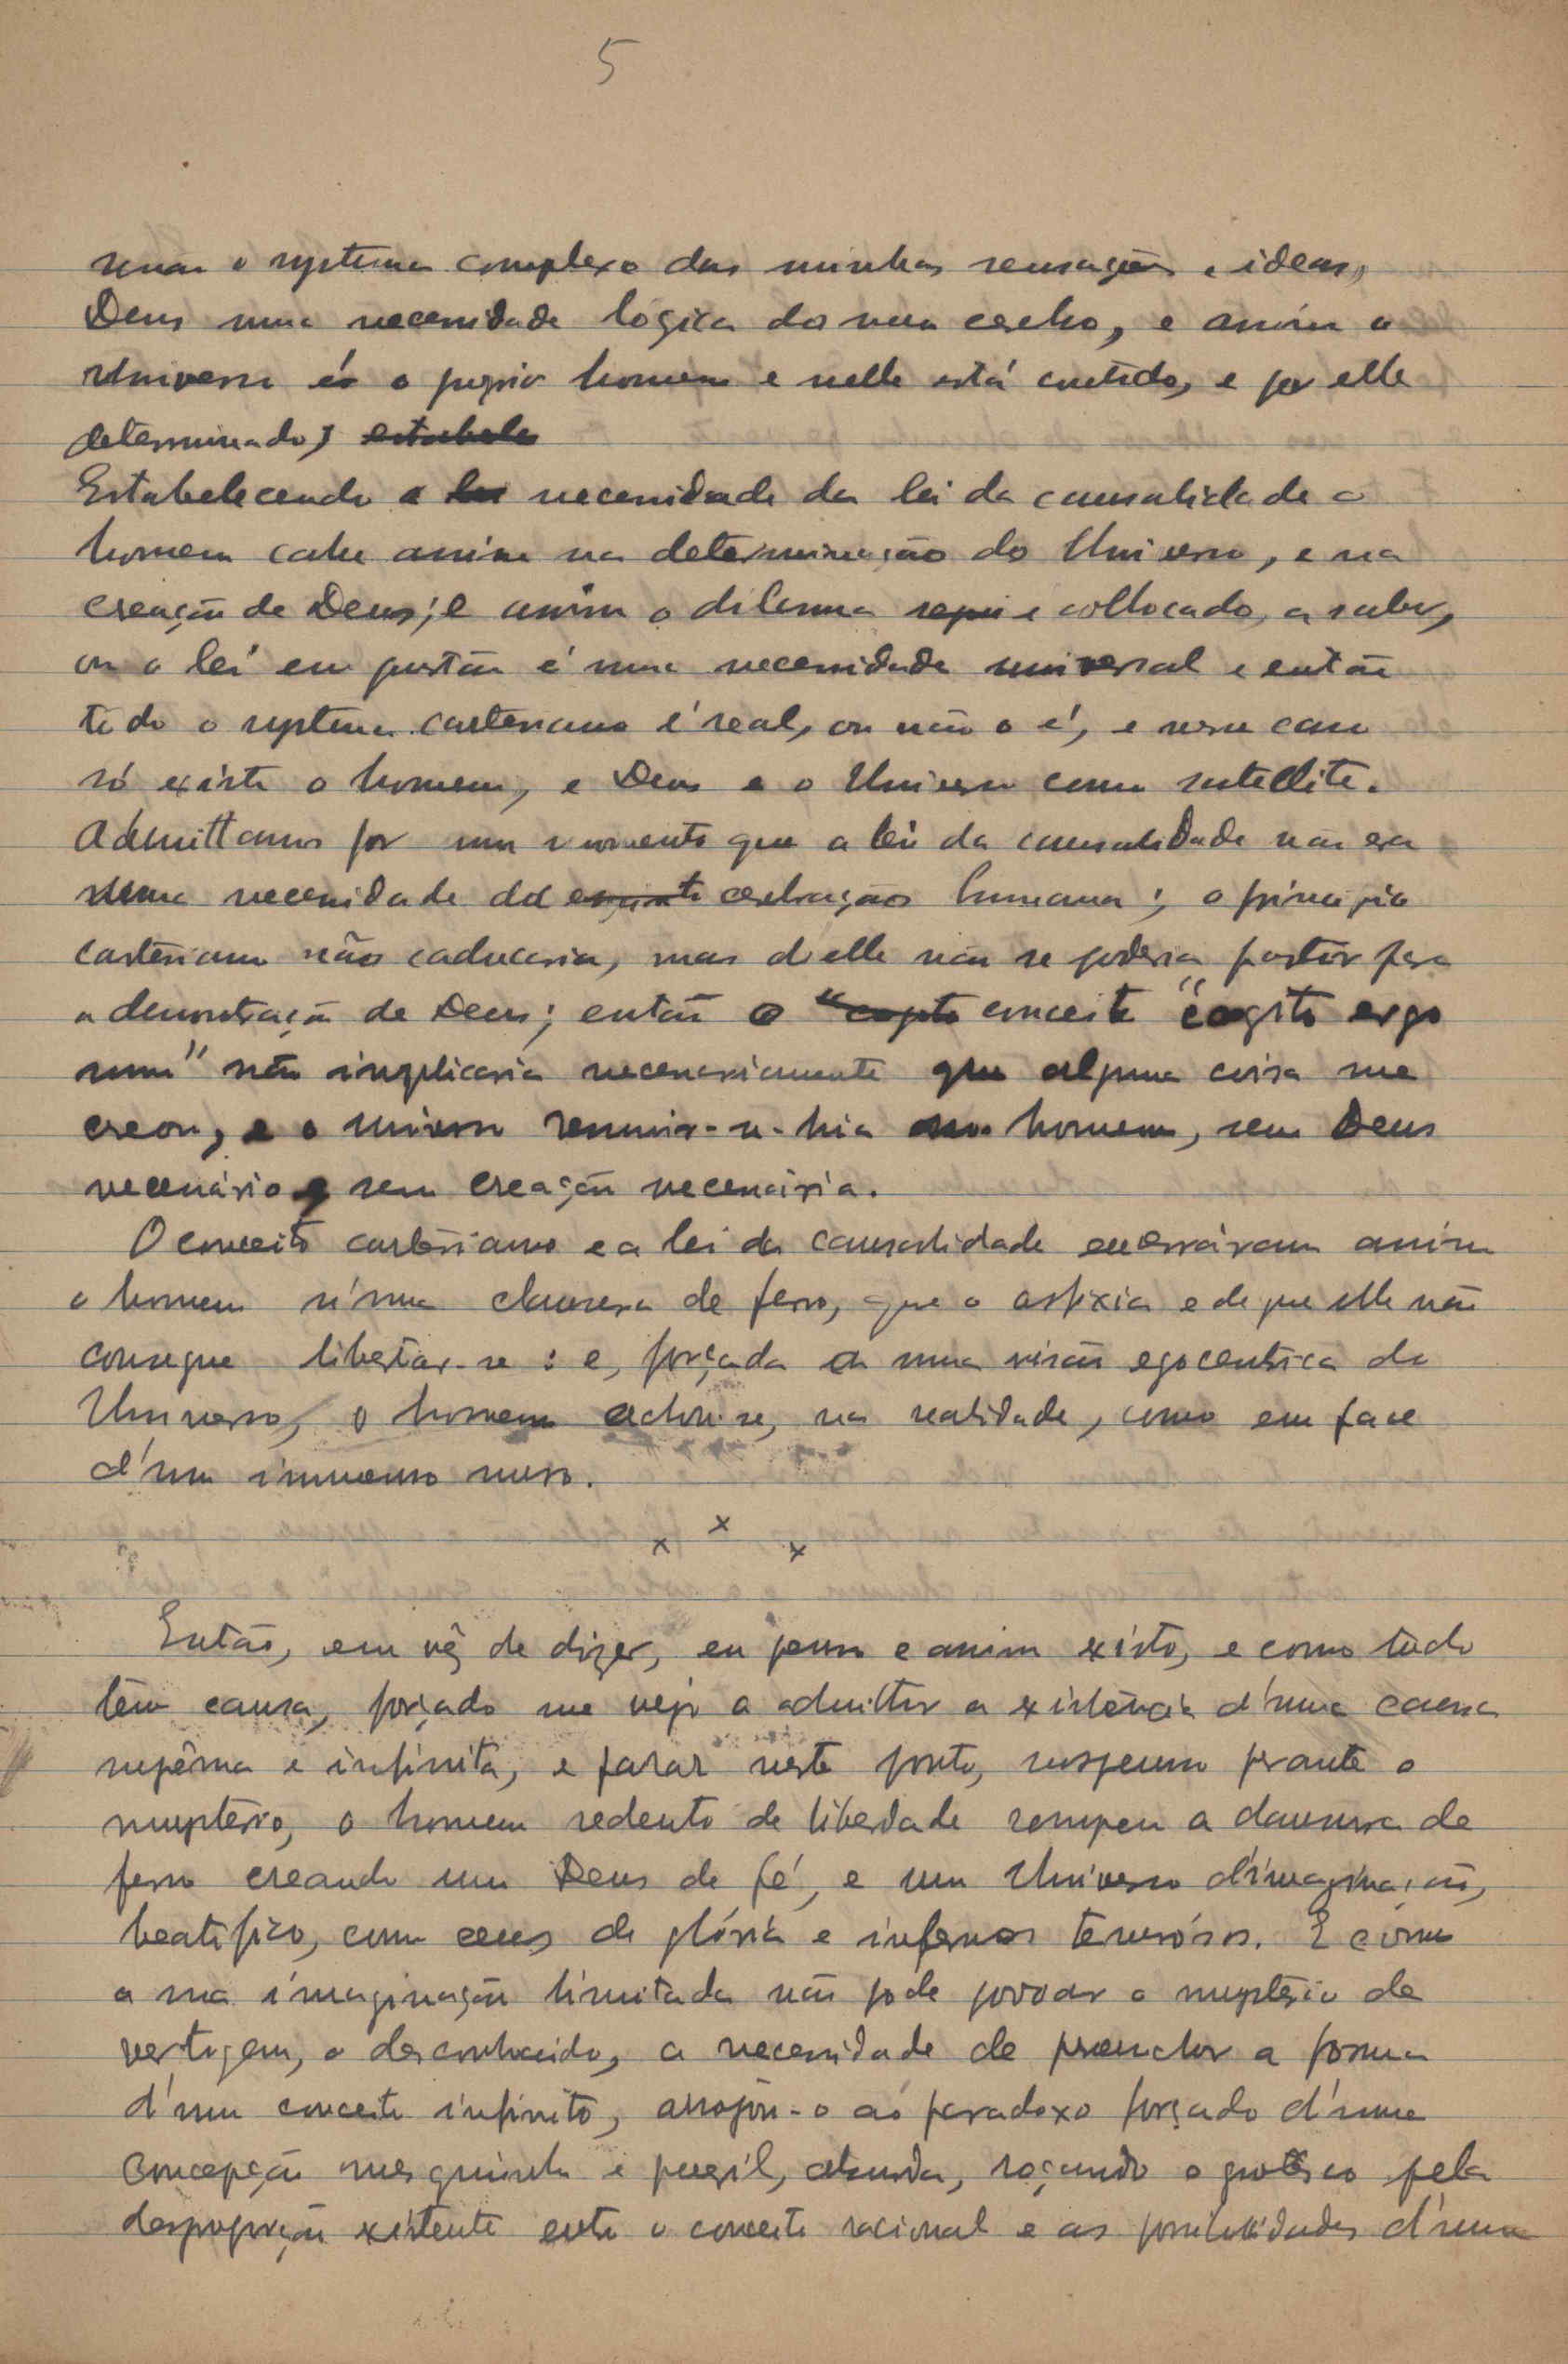 5
senão o systema complexo das minhas sensações e ideas,
Deus uma necessidade lógica do meu cerebro, e assim o
Universo é o proprio homem e nelle está contido, e por elle
determinado; estabele
Estabelecendo a lei necessidade da lei da causalidade o
homem cahe assim na determinação do Universo, e na
creação de Deus; e assim o dilemma e collocado, a saber,
ou a lei em questão é uma necessidade universal e então
todo o systema cartesiano é real, ou não o é, e nesse caso
só existe o homem, e Deus e o Universo como satellite.
Admittamos por um momento que a lei da causalidade não era
uma necessidade da cerebração humana; o principio
cartesiano não caducaria, mas d'elle não se poderia partir para
a demonstração de Deus; então o "cogito conceito "cogito ergo
sum" não implicaria necessariamente que alguma coisa me
creou, e o universo resumir-se-hia no homem, sem Deus
necessário e sem creação necessária.
O conceito cartesiano e a lei da causalidade encerráram assim
o homem n'uma clausura de ferro, que o asfixia e de que elle não
consegue libertar-se: e, forçada a uma visão egocentrica do
Universo, o homem achou-se, na realidade, como em face
d'um immenso muro.
x x x
Então, em vêz de dizer, eu penso e assim existo, e como tudo
têm causa, forçado me vejo a admittir a existência d'uma causa
suprêma e infinita, e parar neste ponto, suspenso perante o
mystério, o homem sedento de liberdade rompeu a clausura de
ferro creando um Deus de fé, e um Universo d'imaginação,
beatifico, com ceus de glória e infernos tenebrósos. E como
a sua imaginação limitada não pode povoar o mystério de
vertigem, o desconhecido, a necessidade de preencher a forma
d'um conceito infinito, arrojou-o ao paradoxo forçado d'uma
concepção mesquinha e pueril, absurda, roçando o grotesco pela
desproporção existente entre o conceito racional e as possibilidades d'uma